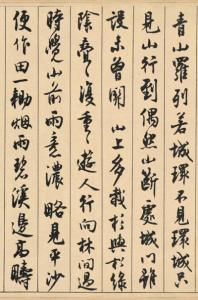 青山羅列若城環不見環城只
見山行到偶然山斷處城門雖
設未曾關 山上多栽杉與松綠
陰疊疊復重重遊人行向林間過
時覺山前雨意濃 略見平沙
便作田一烟雨碧溪邊高疇